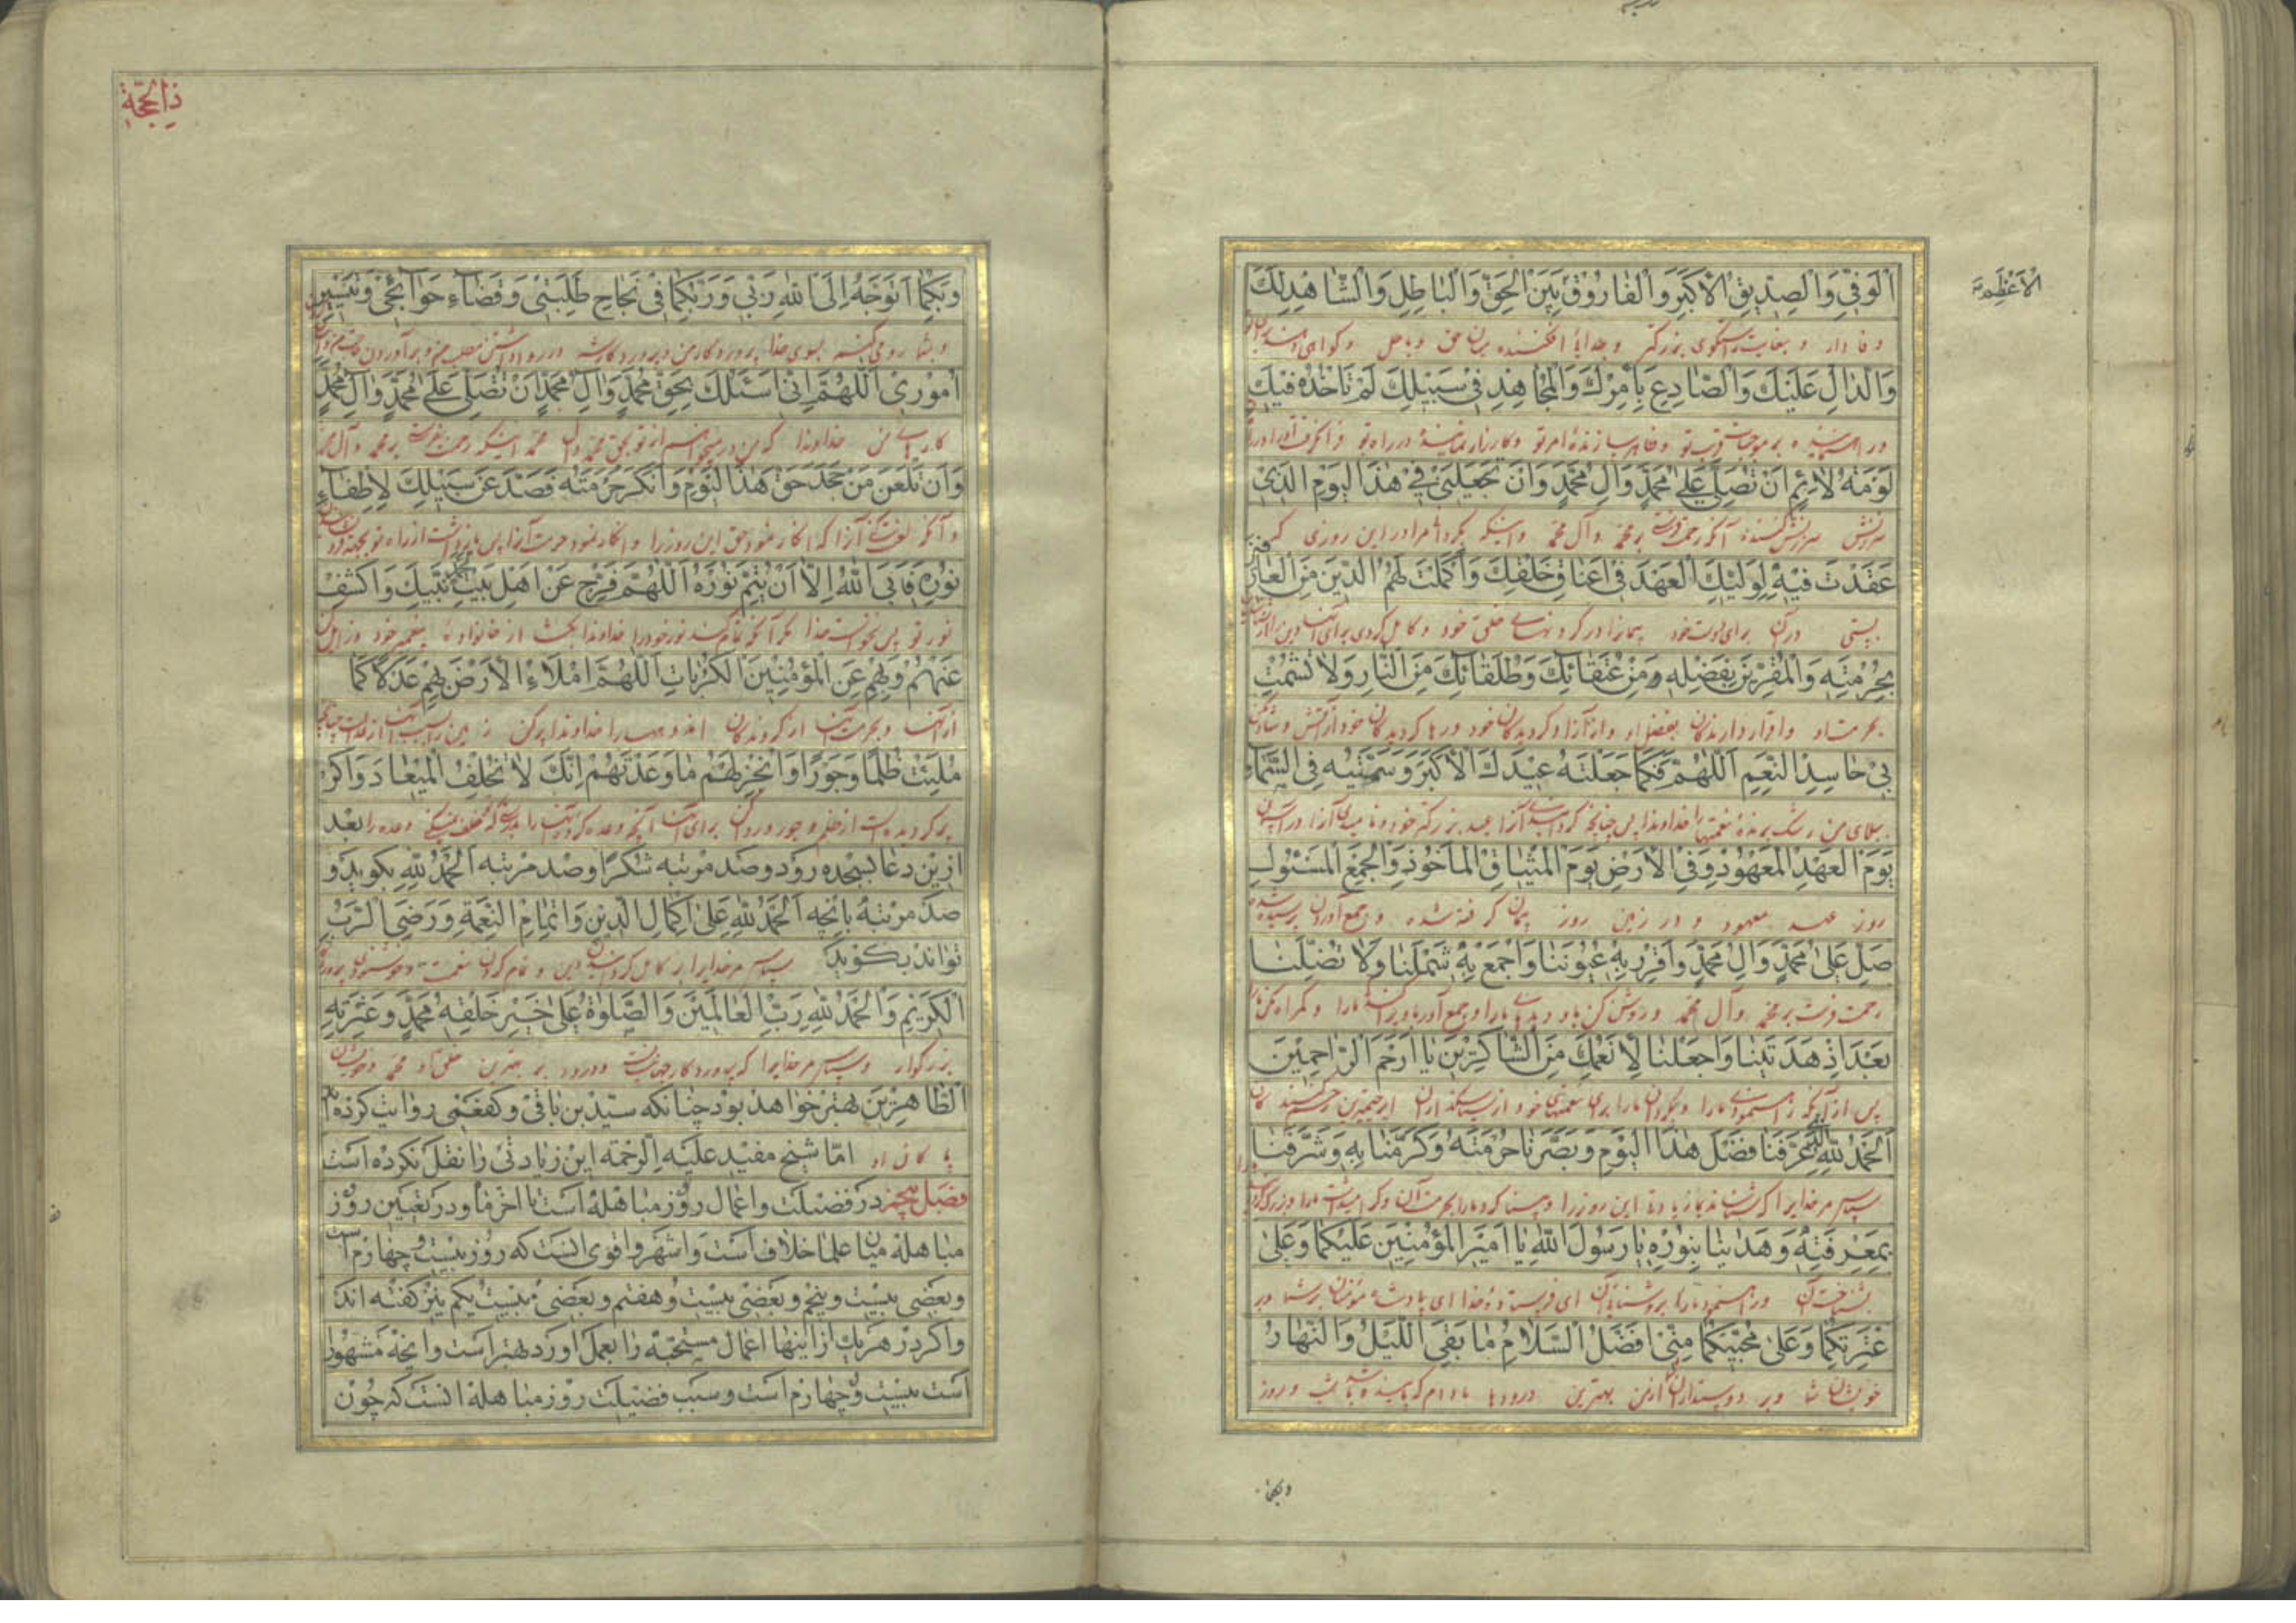 الاَعْظَمِ
اَلْوَفِیِّ وَالصِّدّیقِ الْاَکْبَرِ وَالْفارُوقِ بَیْنَ الْحَقِّ وَالْباطِلِ وَالشّاهِدِ لَکَ
وفادار و بغایت راستگوی بزرگتر و جدایی افکننده میان حق و باطل و گواهی
وَالدّالِّ عَلَیْکَ وَالصّادِعِ بِاَمْرِکَ وَالْمُجاهِدِ فی سَبیلِکَ لَمْ تَاْخُذْهُ فیکَ
و ظاهر سازنده امر تو و کارزار نماینده در راه تو فرا نگرفت او را در
لَوْمَةُ لائِمٍ اَنْ تُصَلِّیَ عَلی مُحَمَّدٍ وَالِ مُحَمَّدٍ وَاَنْ تَجْعَلَنی فی هٰذَا الْیَوْمِ الَّذی
سرزنش سرزنش کننده آنکه رحمت فرستی بر محمد و آل محمد و اینکه بگردانی مرا در این روزی که
عَقَدْتَ فیهِ لِوَلِیِّکَ الْعَهْدَ فی اَعْناقِ خَلْقِکَ وَاَکْمَلْتَ لَهُمُ الدّینَ مِنَ الْعارِفینَ
بستی در آن برای دوست خود پیمان را در گردنهای خلق خود و کامل کردی برای آنها دین را از
بِحُرْمَتِهِ وَالْمُقِرّینَ بِفَضْلِهِ وَمِنْ عُتَقائِکَ وَطُلَقائِکَ مِنَ النّارِ وَلا تُشْمِتْ
بحرمت او و اقرار دارندگان بفضل او و از آزاد کردیدگان خود و رها کردیدگان خود از آتش و شاد مکن
بی حاسِدِ النِّعَمِ اَللّهُمَّ فَکَما جَعَلْتَهُ عیدَکَ الْاَکْبَرَ وَسَمَّیْتَهُ فِی السَّماءِ
ببلای من رشک برنده نعمتها را خداوندا پس چنانچه گردانیدی آنرا عید بزرگتر خود و نامیدی آنرا در آسمان
یَوْمَ الْعَهْدِ الْمَعْهُودِ وَفِی الْاَرْضِ یَوْمَ الْمیثاقِ الْمَاْخُوذِ وَالْجَمْعِ الْمَسْئُولِ
روز عهد معهود و در زمین روز پیمان گرفته شده و جمع آوردن پرسیده شده
صَلِّ عَلی مُحَمَّدٍ وَالِ مُحَمَّدٍ وَاَقْرِرْ بِهِ عُیُونَنا وَاجْمَعْ بِهِ شَمْلَنا وَلا تُضِلَّنا
رحمت فرست بر محمد و آل محمد و روشن کن باو دیدهای ما را و جمع آور باو پراکنده ما را و گمراه مکن ما را
بَعْدَ اِذْ هَدَیْتَنا وَاجْعَلْنا لِاَنْعُمِکَ مِنَ الشّاکِرینَ یا اَرْحَمَ الرّاحِمینَ
پس از آنکه راه نمودی ما را و بگردان ما را برای نعمتهای خود از سپاسگذاران ای رحیم‌ترین رحم کنندگان
اَلْحَمْدُ لِلّهِ الَّذی عَرَّفَنا فَضْلَ هٰذَا الْیَوْمِ وَبَصَّرَنا حُرْمَتَهُ وَکَرَّمَنا بِهِ وَشَرَّفَنا
سپاس مر خدایرا که شناسانید بما زیادتی این روز را و بینا کرد ما را بحرمت آن و گرامی داشت ما را
بِمَعْرِفَتِهِ وَهَدانا بِنُورِهِ یا رَسُولَ اللهِ یا اَمیرَ الْمُؤْمِنینَ عَلَیْکُما وَعَلی
بشناختن آن و راه نمود ما را بروشنایی آن ای فرستاده خدا ای پادشاه مؤمنان بر شما و بر
عِتْرَتِکُما وَعَلی مُحِبّیکُما مِنّی اَفْضَلُ السَّلامِ ما بَقِیَ اللَّیْلُ وَالنَّهارُ
خویشان شما و بر دوستداران شما از من بهترین درودها مادام که پاینده باشد شب و روز
وبکما
ذِی الحِجّة
وَبِکُما اَتَوَجَّهُ اِلَی اللهِ رَبّی وَرَبِّکُما فی نَجاحِ طَلِبَتی وَقَضاءِ حَوائِجی وَتَیْسیرِ
و بشما رو میکنم بسوی خدا پروردگار من و پروردگار شما در روا داشتن مطلب من و برآوردن حاجت من و آسان
اُمُوری اَللّهُمَّ اِنّی اَسْئَلُکَ بِحَقِّ مُحَمَّدٍ وَالِ مُحَمَّدٍ اَنْ تُصَلِّیَ عَلی مُحَمَّدٍ وَالِ مُحَمَّدٍ
کارهای من خداوندا که من درمیخواهم از تو بحق محمد و آل محمد اینکه رحمت بفرستی بر محمد و آل محمد
وَاَنْ تَلْعَنَ مَنْ جَحَدَ حَقَّ هٰذَا الْیَوْمِ وَاَنْکَرَ حُرْمَتَهُ فَصَدَّ عَنْ سَبیلِکَ لِاِطْفاءِ
و آنکه لعنت کنی آنرا که انکار نمود حق این روز را و انکار نمود حرمت آنرا پس بازداشت از راه تو بجهة
نُورِکَ فَاَبَی اللهُ اِلّا اَنْ یُتِمَّ نُورَهُ اَللّهُمَّ فَرِّجْ عَنْ اَهْلِ بَیْتِ مُحَمَّدٍ نَبِیِّکَ وَاکْشِفْ
نور تو پس نخواست خدا مگر آنکه تمام کند نور خود را خداوندا بگشا از خانواده پیغمبر خود و زایل کن
عَنْهُمْ وَبِهِمْ عَنِ الْمُؤْمِنینَ الْکُرُباتِ اَللّهُمَّ امْلَاءِ الْاَرْضَ بِهِمْ عَدْلًا کَما
از آنها و بحرمت آنها از گروندگان اندوهها را خداوندا پر کن زمین را بسبب آنها از عدالت چنانچه
مُلِئَتْ ظُلْمًا وَجَوْرًا وَاَنْجِزْ لَهُمْ ما وَعَدْتَهُمْ اِنَّکَ لا تُخْلِفُ الْمیعادَ واکر
پر گردیده است از ظلم و جور و روا کن برای آنها آنچه وعده کرده آنها را بدرستی که تو خلف نمیکنی وعده را بعد
ازین دعا بسجده رود و صد مرتبه شکرًا و صد مرتبه اَلْحَمْدُ لِلّهِ بکوید و
صد مرتبه بانچه اَلْحَمْدُ لِلّهِ عَلی اِکْمالِ الدّینِ وَاِتْمامِ النِّعْمَةِ وَرِضَی الرَّبِّ
تواند بکوید سپاس مر خدایرا بر کامل کردن دین و تمام کردن نعمت و خوشنودی پروردگار
الْکَریمِ وَالْحَمْدُ لِلّهِ رَبِّ الْعالَمینَ وَالصَّلٰوةُ عَلی خَیْرِ خَلْقِهِ مُحَمَّدٍ وَعِتْرَتِهِ
بزرگوار و سپاس مر خدایرا که پروردگار جهانیانست و درود بر بهترین خلق او محمد و خویشان
الطّاهِرینَ بهتر خواهد بود چنانکه سیّد بن باقی و کفعمی روایت کرده‌اند
پاکان او امّا شیخ مفید علیه الرّحمه این زیادتی را نقل نکرده است
فصل پنجم در فضیلت و اعمال روز مباهله است تا اخر ماه و در تعیین روز
مباهله میان علما خلاف است و اشهر و اقوی انست که روز بیست و چهارم است
و بعضی بیست و پنجم و بعضی بیست و هفتم و بعضی بیست یکم نیز کفته اند
و اکر در هر یك از اینها اعمال مستحبّه را بعمل اورد بهتر است و انچه مشهور
است بیست و چهارم است و سبب فضیلت روز مباهله انست که چون